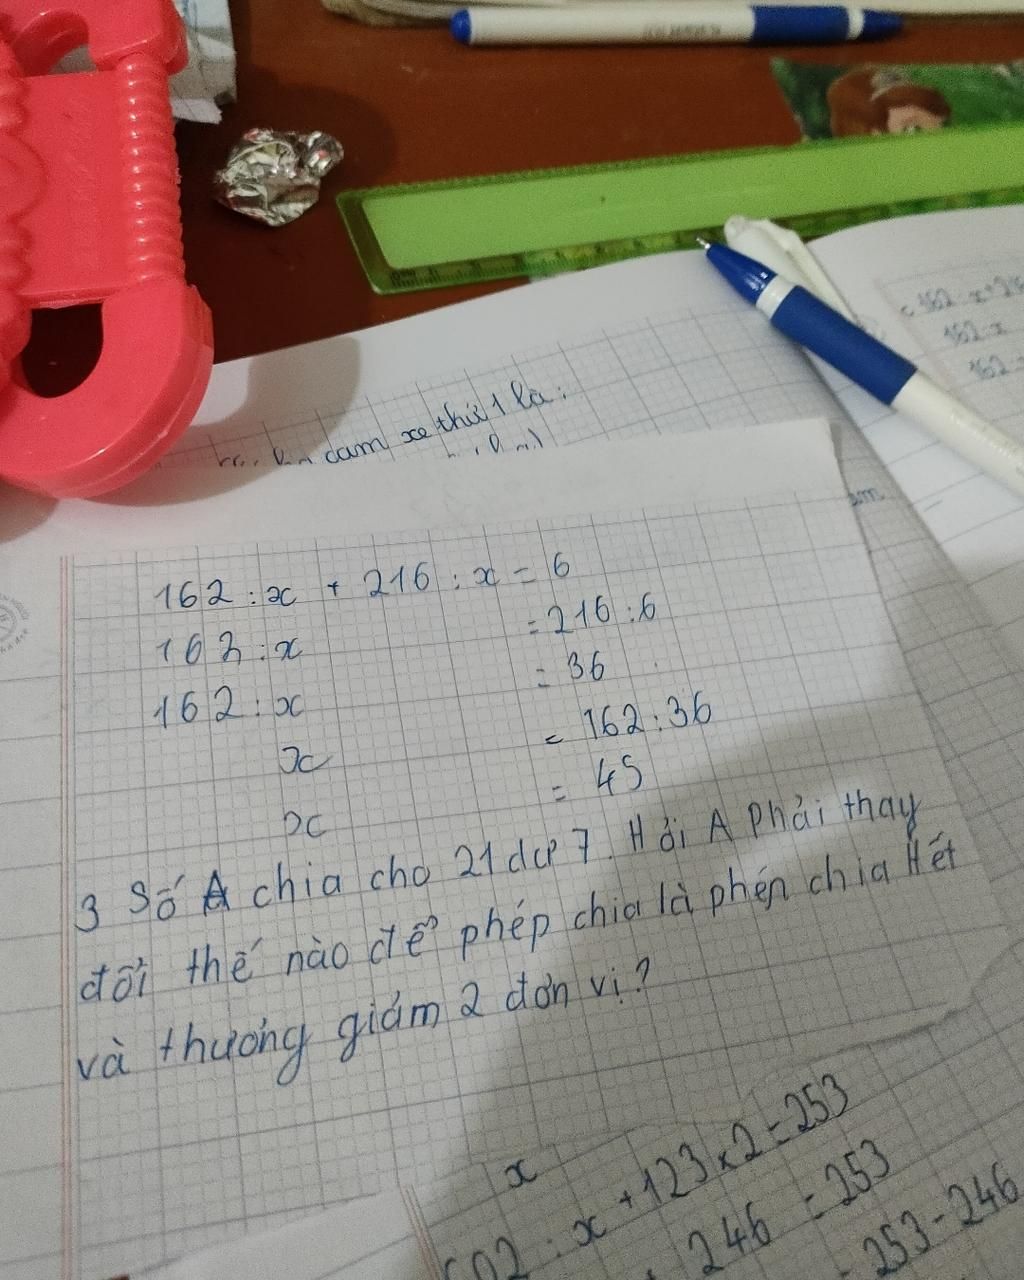 cam xe thứ 1 là:
162 : x + 216 : x = 6
162 : x = 216 : 6
162 : x = 36
x = 162 : 36
x = 45
3 Số A chia cho 21 dư 7. Hỏi A phải thay
đổi thế nào để phép chia là phép chia Hết
và thương giảm 2 đơn vị?
x
: x + 123 x 2 = 253
246 = 253
253 - 246
162 : x
162